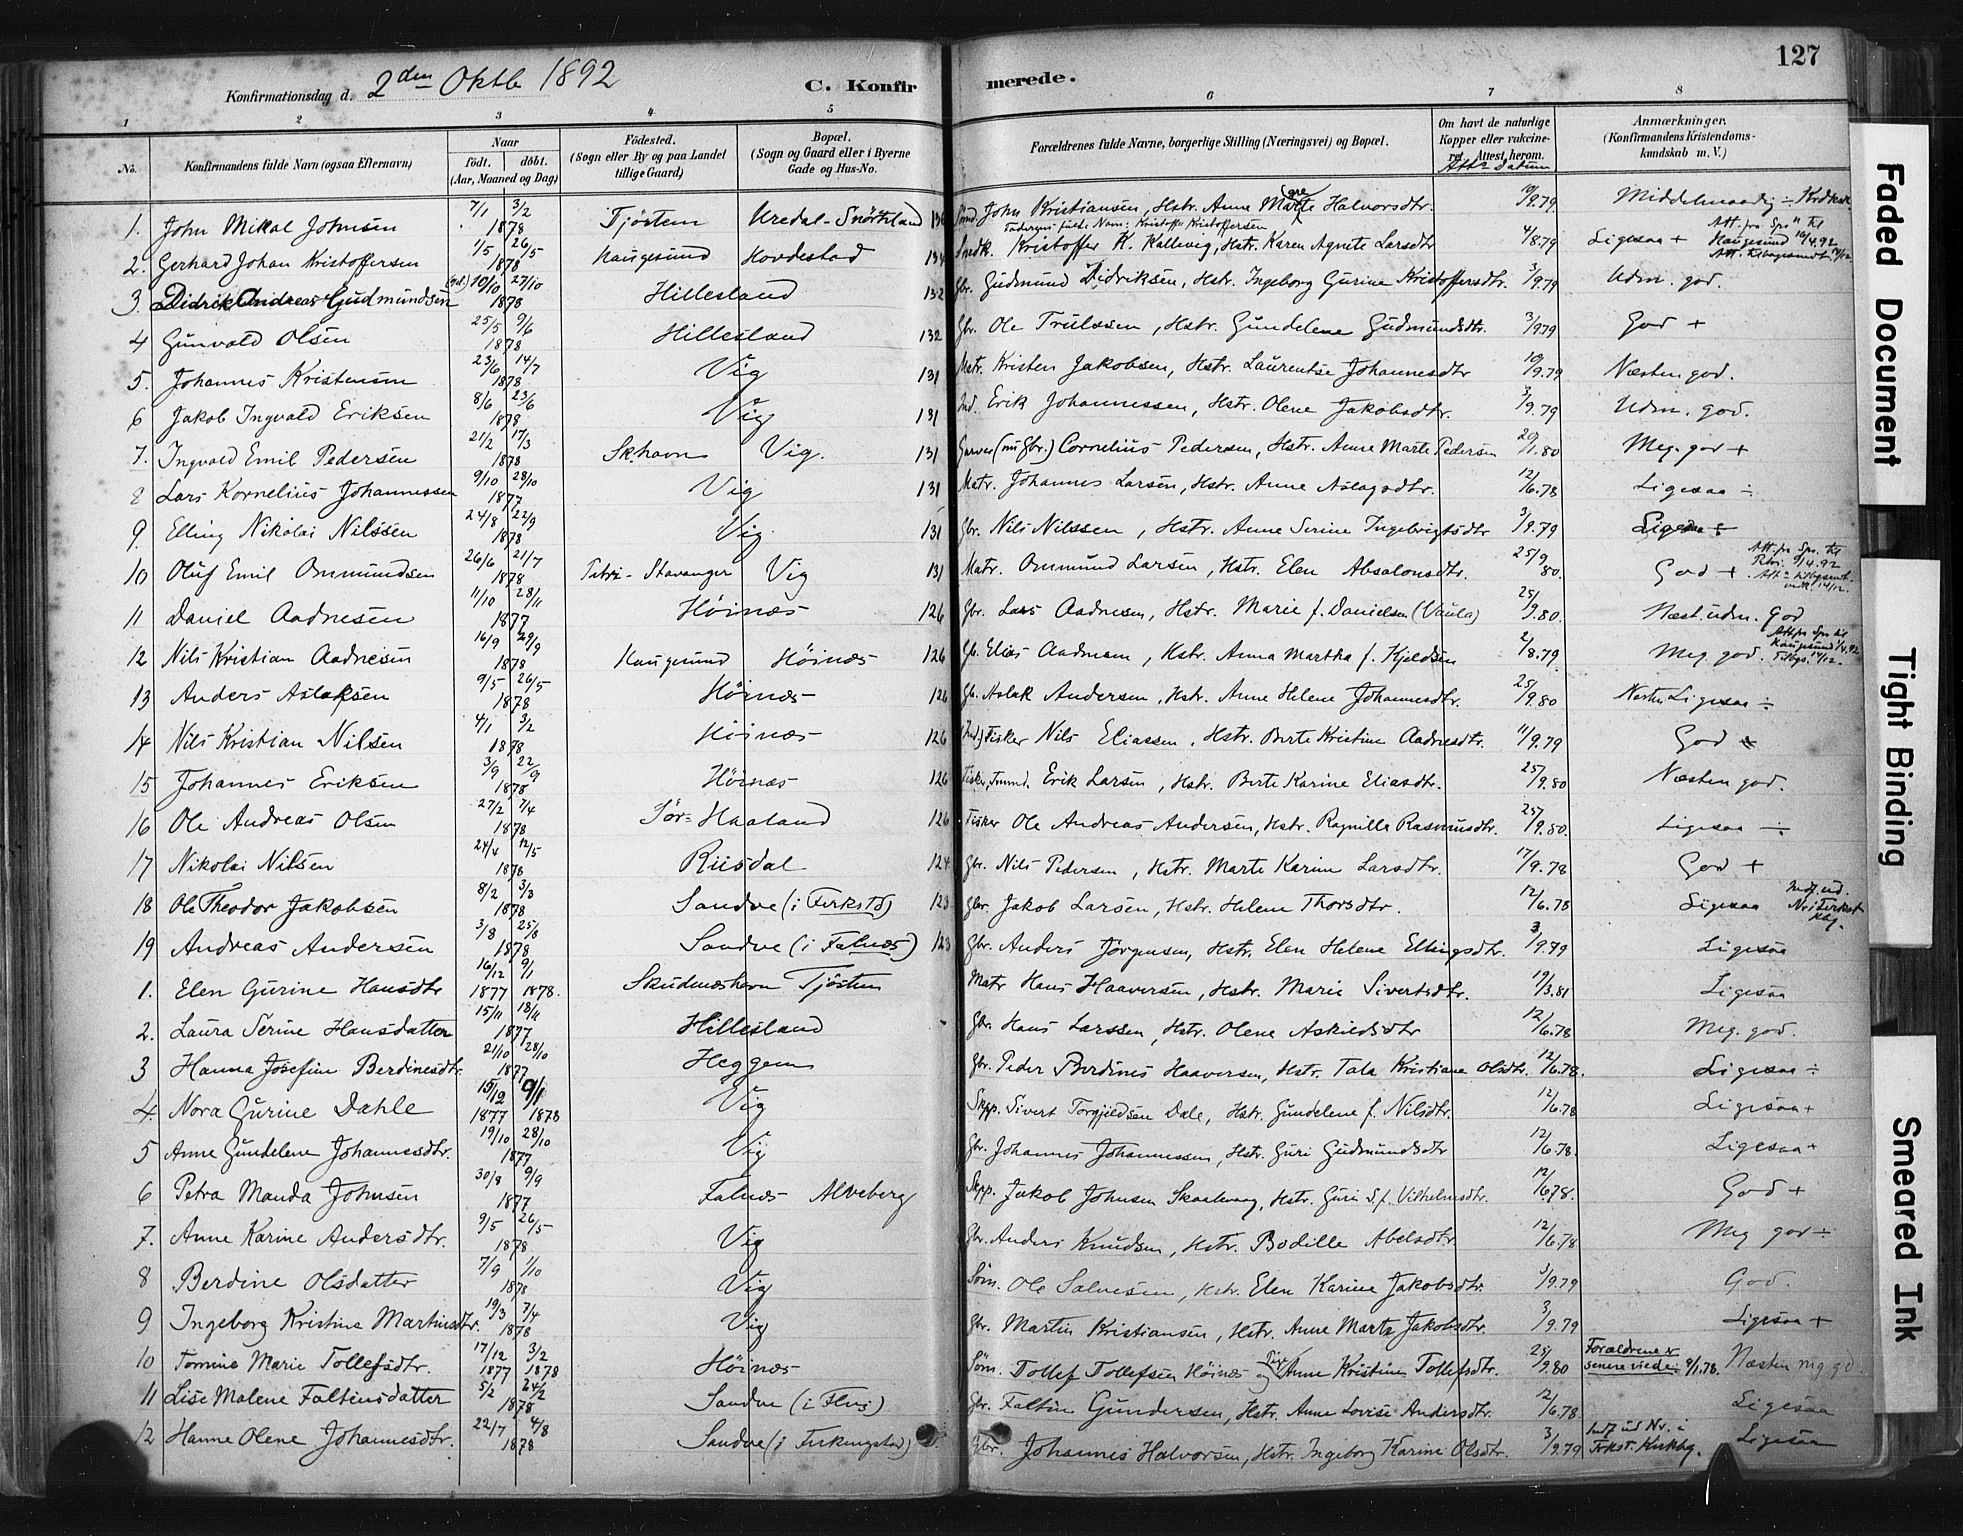 127
Konfirmationsdag d. 2den Oktb 1892 C. Konfirmerede.
1 2 3 4 5 6 7 8
No. Konfirmandens fulde Navn (ogsaa Efternavn) Naar født. døbt. (Aar, Maaned og Dag) Fødested. (Sogn eller By og paa Landet tillige Gaard) Bopæl. (Sogn og Gaard eller i Byerne Gade og Hus-No. Forældrenes fulde Navne, borgerlige Stilling (Næringsvei) og Bopæl. Om havt de naturlige Kopper eller vakcineret. Attest herom. Att= Datum Anmærkninger. (Konfirmandens Kristendomskundskab m. V.)
1. John Mikal Johnsen 7/1 3/2 1878 Tjösten Uredal- John Kristiansen, Hstr. Anne Margrete Halvorsdtr. /9.79
Faderens fulde Navn: Kristoffer Kristoffersen
2. Gerhard Johan Kristoffersen 1/5 26/5 1878 Haugesund Hovdestad 134 Snedk. Kristoffer K. Kallevig, Hstr. Karen Agnete Larsdtr 4/8.79 Ligesaa + Att. fra Spr til Haugesund
3. Didrik Andreas Gudmundsen 10/10 27/10 1878 Hillesland 132 Gbr. Gudmund Didriksen, Hstr. Ingeborg Gurine Kristoffersdtr. 3/9.79 Udm. god.
4 Gunvald Olsen 25/5 9/6 1878 Hillesland 132 Gbr. Ole Trulssen, Hstr. Gundelene Gudmundsdtr. 3/9.79 God +
5. Johannes Kristensen 23/6 14/7 1878 Vig 131 Matr. Kristen Jakobsen, Hstr. Laurentse Johannesdtr 10/9.79 Næsten god.
6 Jakob Ingvald Eriksen 8/6 23/6 1878 Vig 131 Ind. Erik Johannessen, Hstr. Olene Jakobsdtr. 3/9.79 Udm. god.
7. Ingvald Emil Pedersen 21/2 17/3 1878 Sk.havn Vig. 131 Garver (nu Gbr.) Cornelius Pedersen, Hstr. Anne Marte Pedersen 20/1.80 Meg. god +
8 Lars Kornelius Johannessen 9/10 28/10 1877 Vig 131 Matr. Johannes Larsen, Hstr. Anne Aslagsdtr. 12/6.78 Ligesaa ÷
9. Elling Nikolai Nilssen 24/8 22/9 1878 Vig 131 Gbr. Nils Nilssen, Hstr. Anne Serine Ingebrigtsdtr 3/9.79 Ligesaa
10 Oluf Emil Ommundsen 26/6 21/7 1878 Petri-Stavanger Vig 131 Matr. Ommund Larsen, Hstr. Elen Absalonsdtr. 25/9 80. God + Att. fra Spr. til Petri.
11 Daniel Aadnesen 11/10 28/11 1877 Höinæs 126 Gbr. Lars Aadnesen, Hstr. Marie f. Danielsen (Vaula) 25/9.80. Næst. udm. God
12 Nils Kristian Aadnesen 16/9 29/9 1878 Haugesund Höinæs 126 Gb. Elias Aadnesen, Hstr. Anna Martha f. Kjeldsen 2/8.79 Meg god. Att. fra Spr til Haugesund
13 Anders Aslaksen 9/5 26/5 1878 Höinæs 126 Gb. Aslak Andersen, Hstr. Anne Helene Johannesdtr. 25/9.80 Næsten Ligesaa ÷
14 Nils Kristian Nilsen 4/1 3/2 1878 Höinæs 126 Fisker Nils Eliassen, Hstr. Berte Kristine Aadnesdtr. 11/9.79 God
15 Johannes Eriksen 3/9 22/9 1878 Höinæs 126 Fisker, Erik Larsen, Hstr. Berte Karine Eliasdtr. 25/9.80 Næsten god.
16 Ole Andreas Olsen 27/2 7/4 1878 Sör-Haaland 126 Fisker Ole Andreas Andersen, Hstr. Ragnille Rasmusdtr. 25/9.80. Ligesaa ÷
17 Nikolai Nilsen 24/4 12/5 1878 Riisdal 124 Gbr. Nils Pedersen, Hstr. Marte Karine Larsdtr. 17/9.78 God +
18 Ole Theodor Jakobsen 8/2 3/3 1878 Sandve (i Ferkst) 123 Gbr. Jakob Larsen, Hstr. Helene Thorsdtr. 12/6.78 Ligesaa Indf. ud. Nr i Ferkst Kbg.
19 Andreas Andersen 3/8 25/8 1878 Sandve (i Falnæs) 123 Gbr. Anders Jörgensen, Hstr. Elen Helene Ellingsdtr. 3/9.79 Ligesaa
1. Elen Gurine Hansdtr 16/12 9/1 1877 1878. Skudeneshavn Tjösten Matr Hans Haaversen, Hstr. Marie Sivertsdtr. 19/3.81 Ligesaa
2. Laura Serine Hansdatter 15/11 18/11 1877 Hillesland Gbr. Hans Larssen, Hstr. Olene Askildsdtr 12/6.78 Meg. god.
3 Hanna Josefine Berdinesdtr. 21/10 28/10 1877 Heggem Gbr. Peder Berdines Haaversen, Hstr. Tala Kristiane Olsdtr. 12/6.78. Ligesaa ÷
4. Nora Gurine Dahle 15/12 9/1 1877 1878 Vig Skpp. Sivert Torgjeldsen Dale, Hstr. Gundelene f. Nilsdtr. 12/6.78 Ligesaa +
5 Anne Gundelene Johannesdtr. 19/10 28/10 1877 Vig Gbr. Johannes Johannessen, Hstr. Guri Gudmundsdtr 12/6.78. Ligesaa +
6 Petra Manda Johnsen 30/8 9/9 1877 Falnæs Alveberg Skpp. Jakob Johnsen, Hstr. Guri S. f. Vilhelmsdtr. 12/6.78. God +
7. Anne Karine Andersdtr. 9/5 26/5 1878 Vig Gbr. Anders Knudsen, Hstr. Bodille Abelsdtr 12/6.78 Meg god ÷
8 Berdine Olsdatter 7/9 1/10 1878 Vig Söm. Ole Salvesen, Hstr. Elen Karine Jakobsdtr. 3/9.79 God
9 Ingeborg Kristine Martinsdtr. 19/3 7/4 1878 Vig Gbr. Martin Kristiansen, Hstr. Anne Marta Jakobsdtr. 3/9.79 Ligesaa +
10 Tomine Marie Tollefsdtr. 17/12 3/2 1877 1878 Höinæs Söm. Tollef Tollefsen Höinæs og Pige Anne Kristine Tollefsdtr. 25/9.80 Forældrene senere viede 9/1.78. Næsten mg gd
11 Lise Malene Faltinsdatter 5/2 24/2 1878 Sandve (i Flns) Gbr. Faltin Gundersen, Hstr. Anne Lovise Andersdtr. 12/6.78. Ligesaa
12 Hanne Olene Johannesdtr. 22/7 4/8 1878 Sandve (i Ferkingstad) Gbr. Johannes Halvorsen, Hstr. Ingeborg Karine Olsdtr. 3/9.79 Indf ud Nr. i Frkst. Kirkbg. Ligesaa
Faded Document
Tight Binding
Smeared Ink